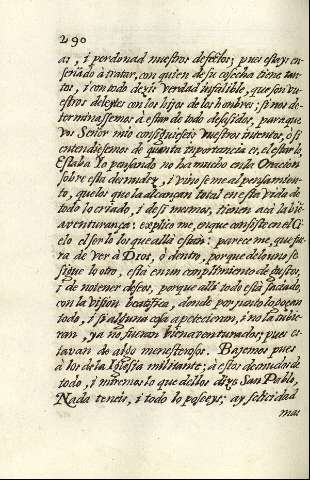 290
as, i perdonad nuestros defectos; pues estoy en-
señado à tratar, con quien de su cosecha tiene tan-
tos, i con todo dezis Verdad infalible, que son vu-
estros deleytes con los hijos de los hombres; si nos de-
terminassemos à estar de todo desasidos, para que
vos Señor mio consigueseis vuestros intentos, ò si
entendiesemos de quanta inportancia es, el estarlo,
Estaba Yo pensando no ha mucho en la Oracion
sobre esta desnudez, i vino se me al pensamien-
to, que los que la alcançan total en esta vida de
todo lo criado, i de si mesmos, tienen acà la bie-
aventurança: explico me, en que consiste en el Ci-
elo el ser lo los que allà estàn: parece me, que fue-
ra de ver à Dios, ò dentro, porque de lo uno se
sigue lo otro, està en un complimiento de gustos,
i de no tener deseos, porque allà todo està saciado,
con la visiòn beatifica, donde por junto lo poseen
todo, i si alguna cosa apetecieran, i no la tubie-
ran, ya no fueran bienaventurados; pues es-
tavan de algo menesterosos. Bajemos pues
à los de la Iglesia militante; à estos desnudos de
todo, i miremos lo que dellos dixo San Pablo,
Nada teneis, i todo lo poseeys; ay felicidad
mas